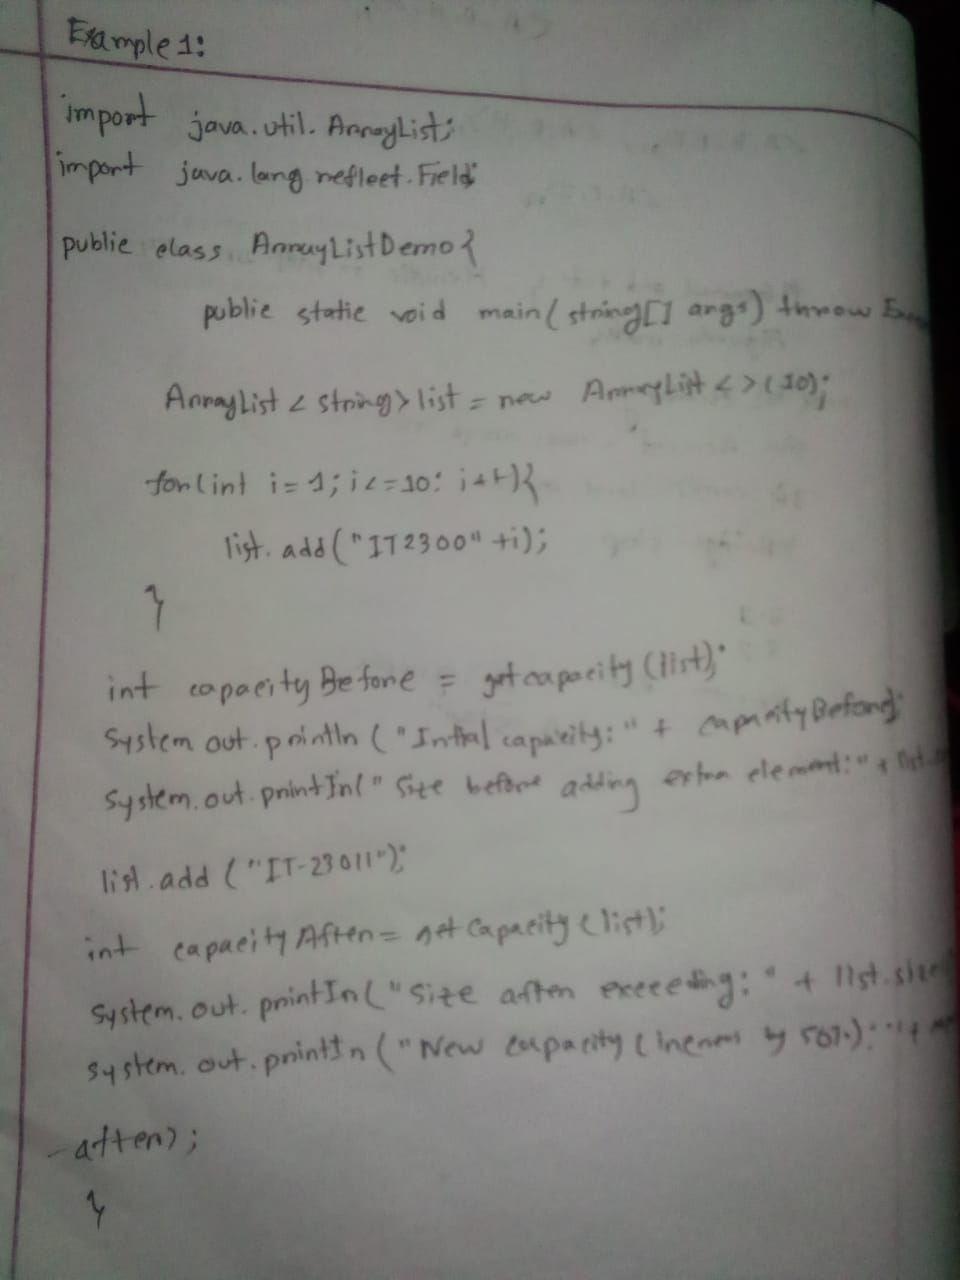 Example 1:
import java.util.ArrayList;
import java.lang reflect.Field;
public class ArrayListDemo{
public static void main(string[] args) throw
ArrayList < string> list = new ArrayList < > (10);
for(int i= 1; i<=10: i++){
list. add("IT2300" +i);
}
int capacity Before = getcapacity (list);
System out.println ("Initial capacity: " + capacityBefore);
System.out.printIn(" Size before adding extra element:" +
list.add ("IT-23011");
int capacity After= get Capacity (list);
System.out. printIn("size after exceeding: " + list.size
system. out. printIn ("New capacity ( by 50%): " +
after);
}